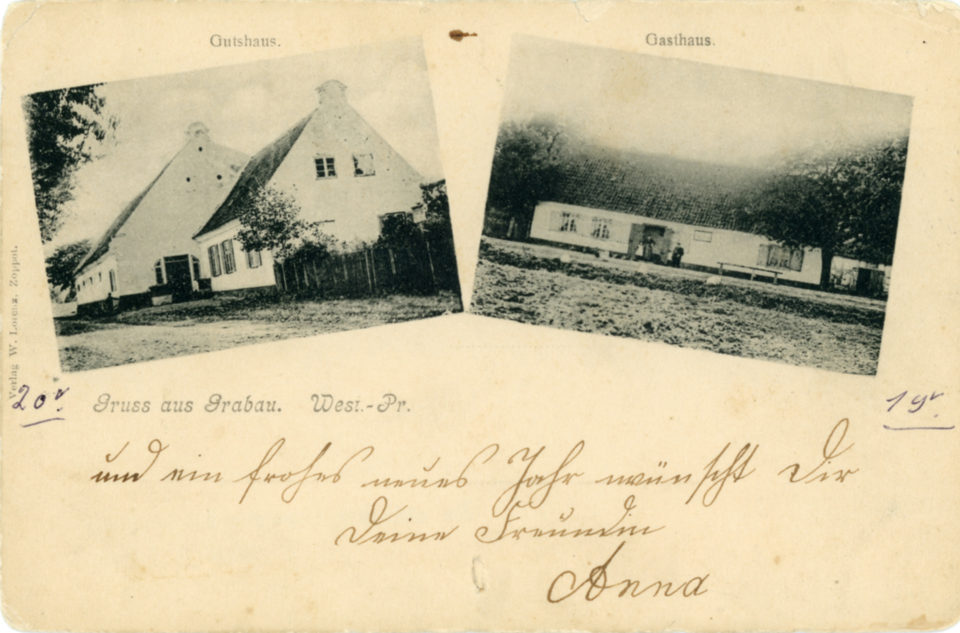 Gutshaus.
Gasthaus.
Verlag W. Lorenz, Zoppot.
Gruss aus Grabau. West.-Pr.
und ein frohes neues Jahr wünscht Dir
Deine Freundin
Anna